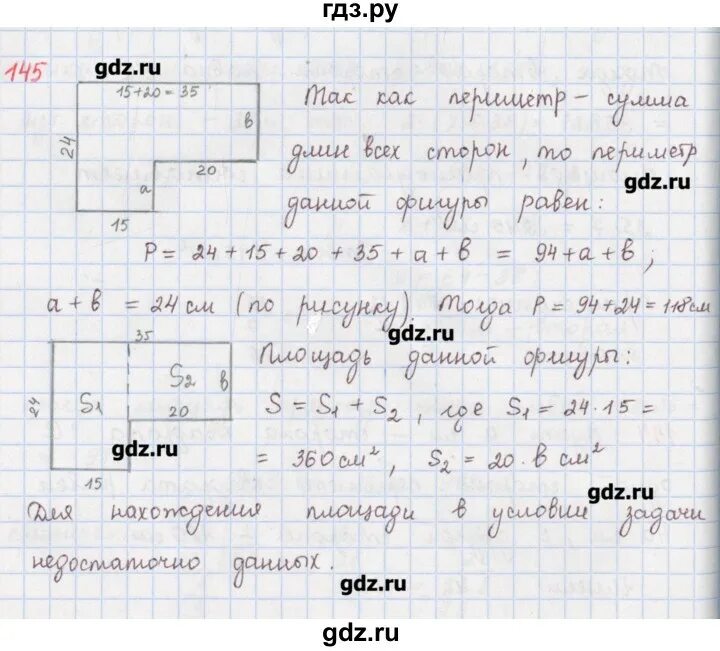 гдз.ру
145
gdz.ru
15+20=35
в
24
20
а
15
Так как периметр - сумма
длин всех сторон, то периметр
gdz.ru
данной фигуры равен:
P = 24 + 15 + 20 + 35 + а + в = 94 + а + в ;
а + в = 24 см (по рисунку). Тогда P = 94 + 24 = 118 см
gdz.ru
35
S1
S2
в
24
20
15
gdz.ru
Площадь данной фигуры:
S = S1 + S2 , где S1 = 24 · 15 =
= 360 см², S2 = 20 · в см²
gdz.ru
Для нахождения площади в условии задачи
недостаточно данных.
gdz.ru
gdz.ru